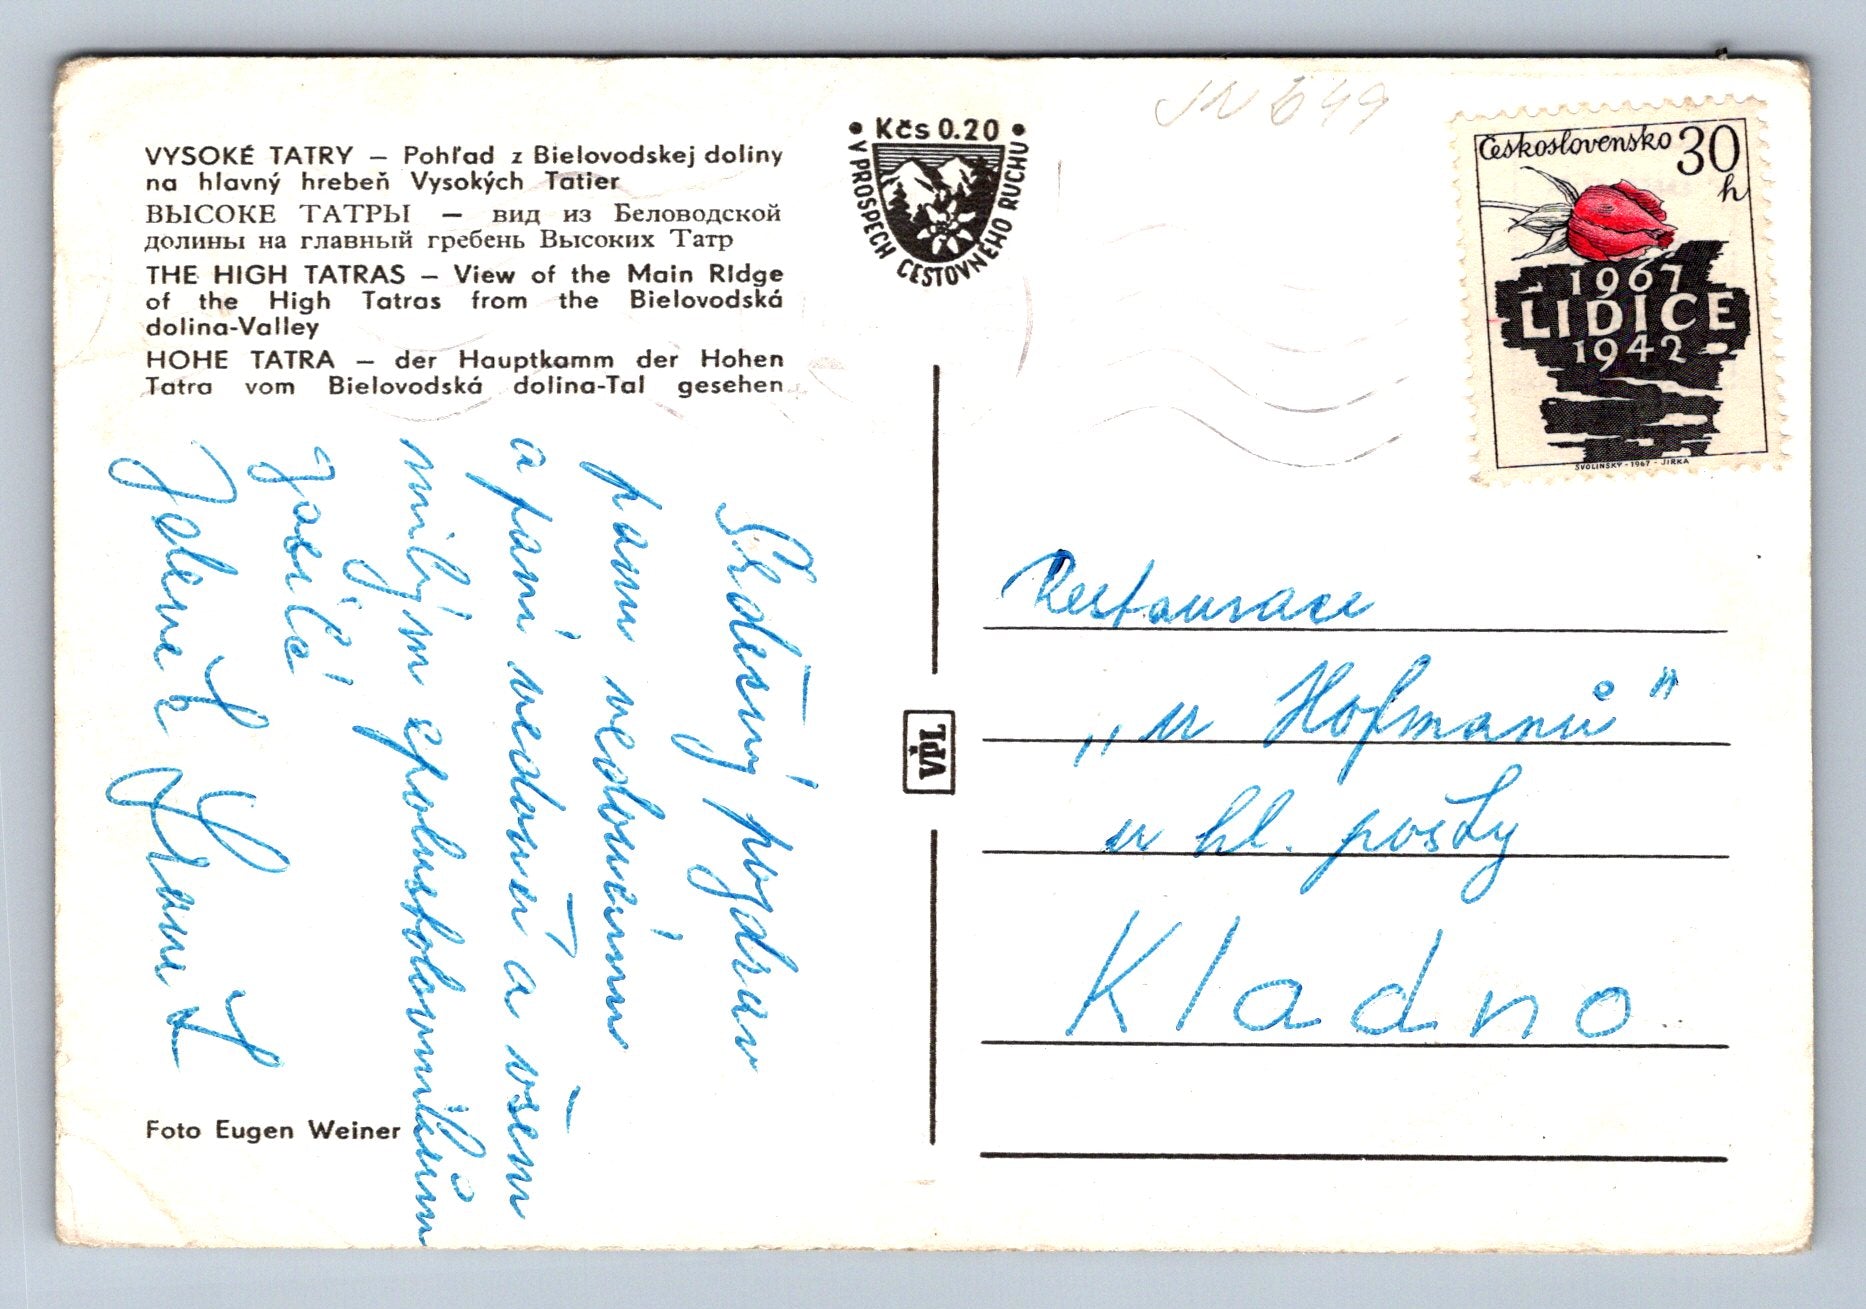 VYSOKÉ TATRY – Pohľad z Bielovodskej doliny
na hlavný hrebeň Vysokých Tatier
ВЫСОКЕ ТАТРЫ – вид из Беловодской
долины на главный гребень Высоких Татр
THE HIGH TATRAS – View of the Main RIdge
of the High Tatras from the Bielovodská
dolina-Valley
HOHE TATRA – der Hauptkamm der Hohen
Tatra vom Bielovodská dolina-Tal gesehen
• Kčs 0.20 •
V PROSPECH CESTOVNÉHO RUCHU
649
Československo 30
h
1967
LIDICE
1942
SVOLINSKÝ - 1967 - JIRKA
Srdečný pozdrav
panu vedoucímu
a paní vedoucí a všem
milým spolustolovníkům
zasílá
Foto Eugen Weiner
VPL
Restaurace
„u Hofmanů"
u hl. pošty
Kladno